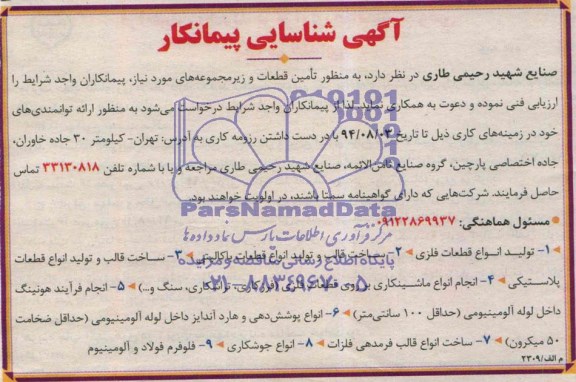 آگهی شناسایی پیمانکار
صنایع شهید رحیمی طاری در نظر دارد، به منظور تأمین قطعات و زیرمجموعه‌های مورد نیاز، پیمانکاران واجد شرایط را
ارزیابی فنی نموده و دعوت به همکاری نماید. لذا از پیمانکاران واجد شرایط درخواست می‌شود به منظور ارائه توانمندی‌های
خود در زمینه‌های کاری ذیل تا تاریخ ۹۴/۰۸/۰۳ با در دست داشتن رزومه کاری به آدرس: تهران- کیلومتر ۳۰ جاده خاوران،
جاده اختصاصی پارچین، گروه صنایع ثامن الائمه، صنایع شهید رحیمی طاری مراجعه و یا با شماره تلفن ۳۳۱۳۰۸۱۸ تماس
حاصل فرمایند. شرکت‌هایی که دارای گواهینامه سمتا باشند، در اولویت خواهند بود.
ParsNamadData
مسئول هماهنگی: ۰۹۱۲۲۸۶۹۹۳۷
مرکز فرآوری اطلاعات پارس نماد داده‌ها
۱- تولید انواع قطعات فلزی ۲- ساخت قالب و تولید انواع قطعات باکالیتی ۳- ساخت قالب و تولید انواع قطعات
پایگاه اطلاع رسانی مناقصه و مزایده
پلاستیکی ۴- انجام انواع ماشینکاری بر روی قطعات فلزی (فرزکاری، تراشکاری، سنگ و...) ۵- انجام فرآیند هونینگ
۰۲۱-۸۸۳۴۹۶۷۰-۵
داخل لوله آلومینیومی (حداقل ۱۰۰ سانتی‌متر) ۶- انواع پوشش‌دهی و هارد آندایز داخل لوله آلومینیومی (حداقل ضخامت
۵۰ میکرون) ۷- ساخت انواع قالب فرمدهی فلزات ۸- انواع جوشکاری ۹- فلوفرم فولاد و آلومینیوم
م الف/۲۳۰۹